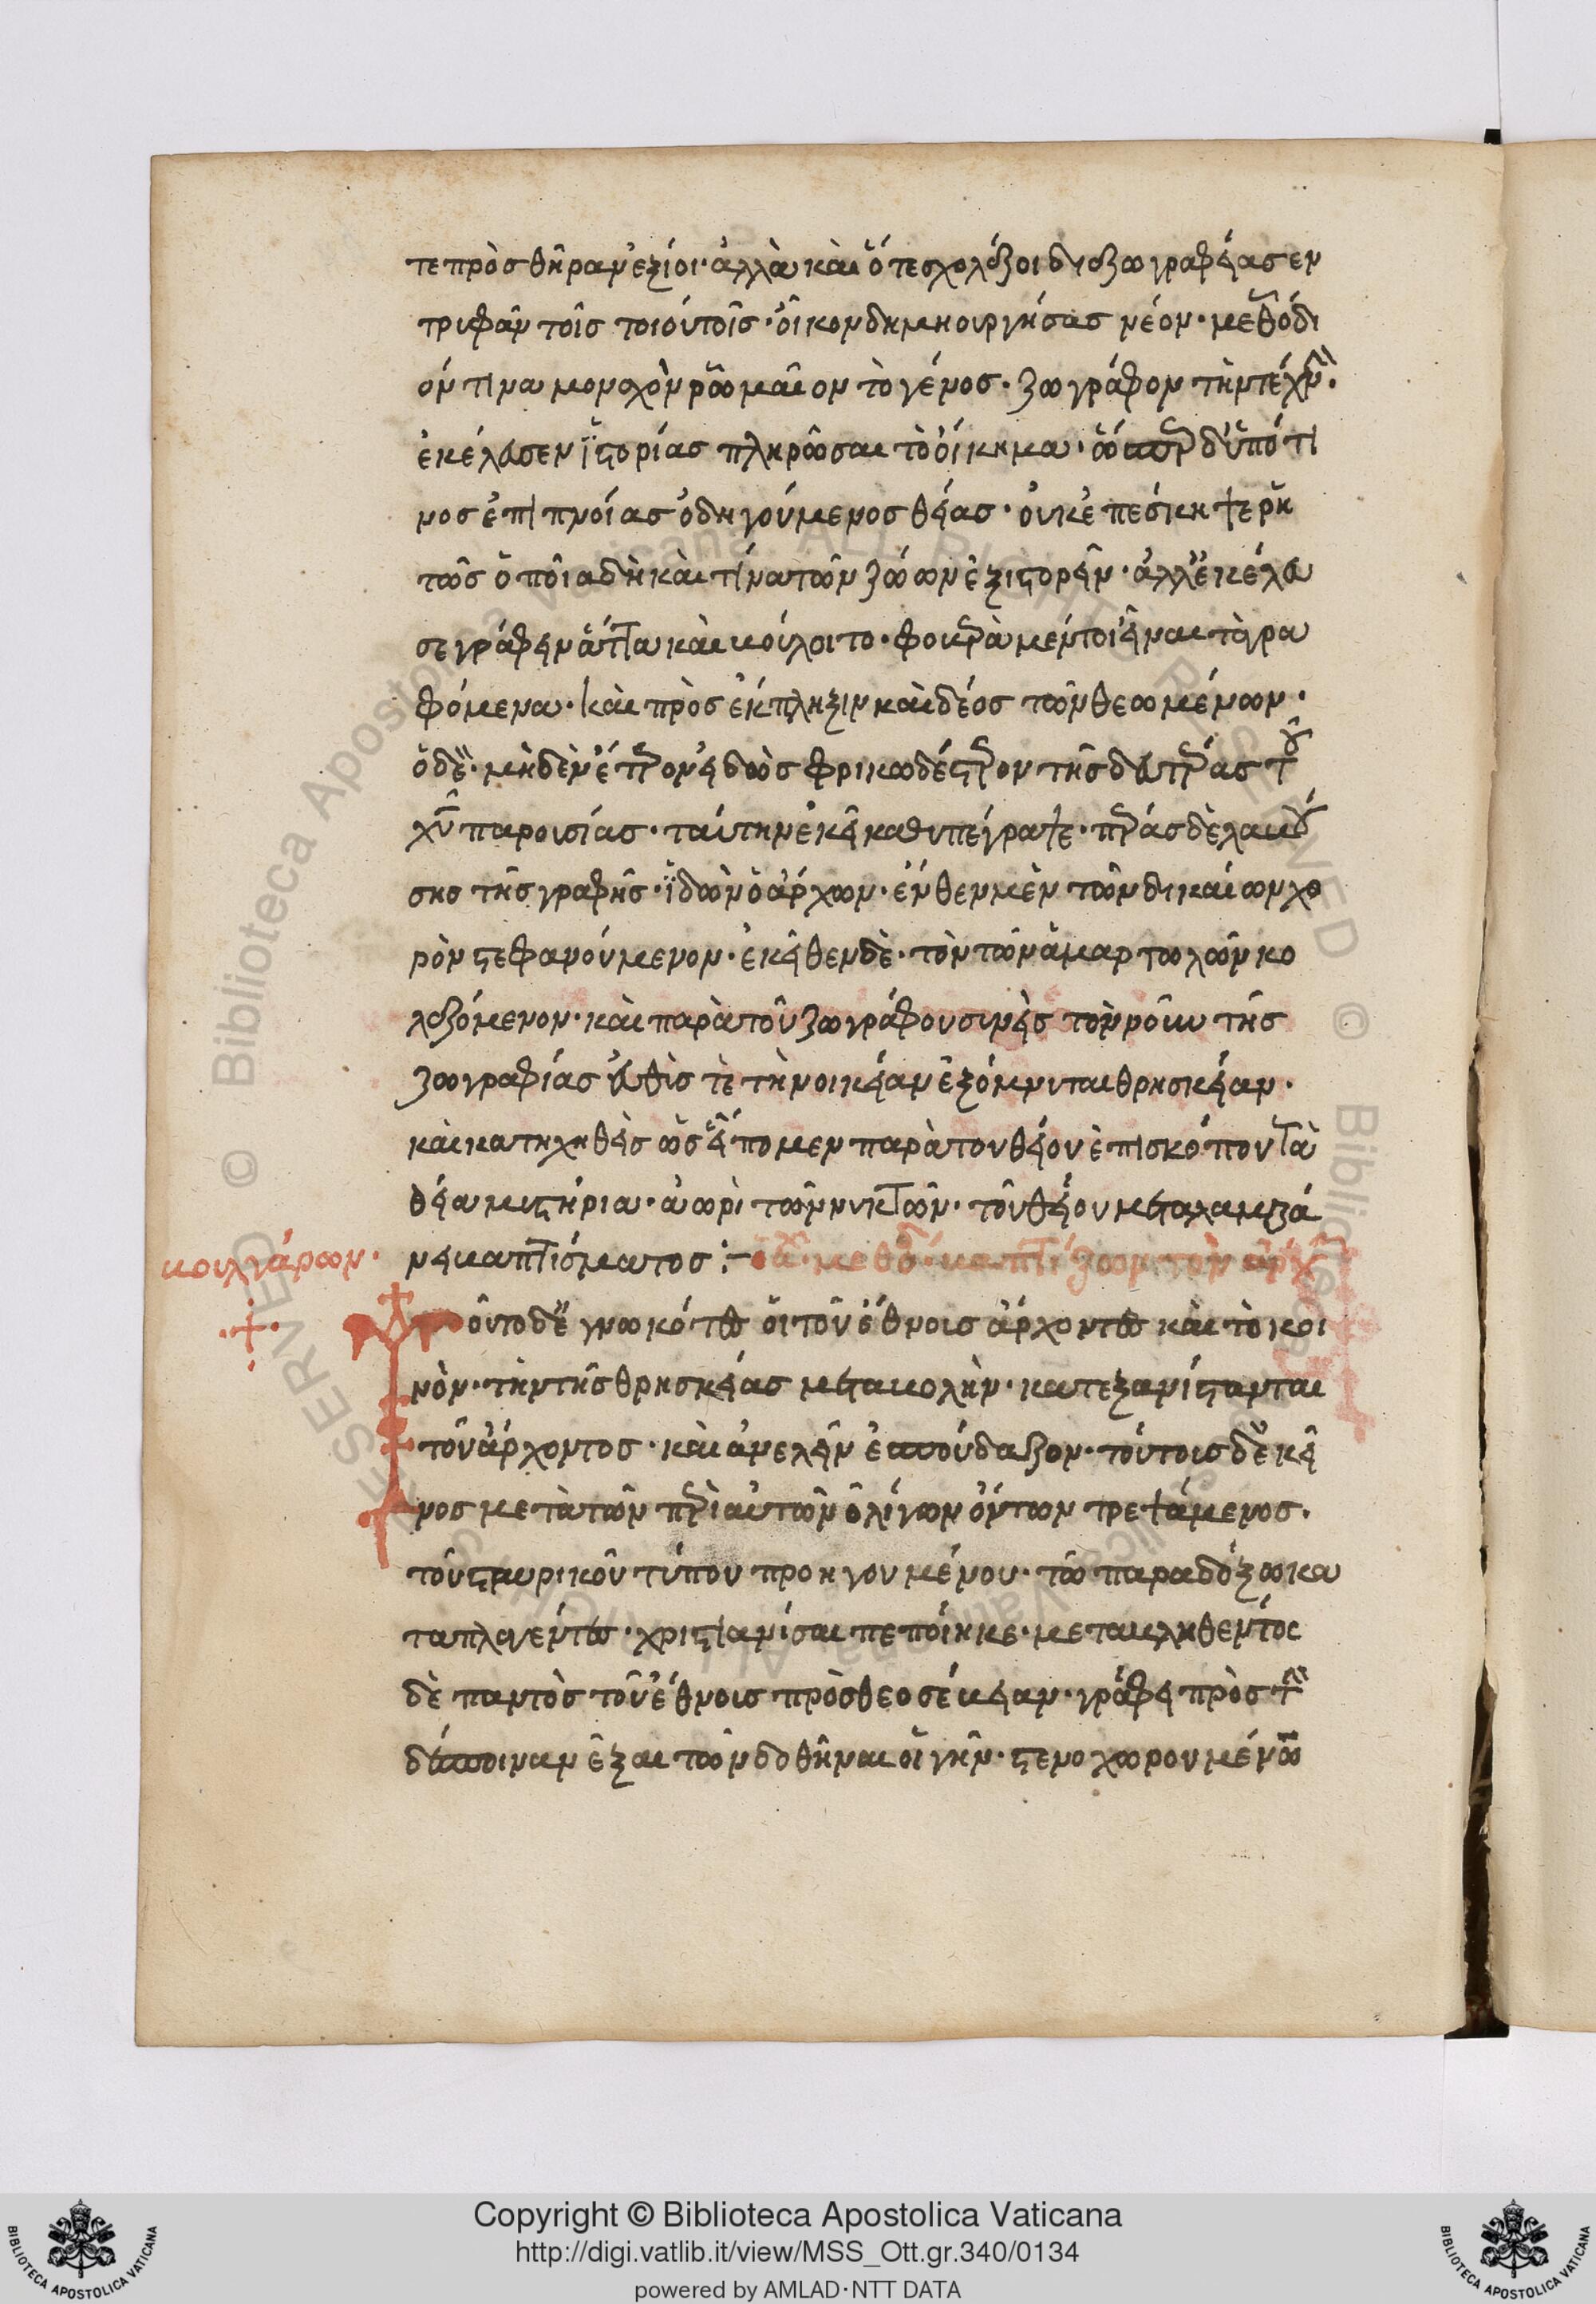 τε πρὸς θῆραν ἐξίοι· ἀλλὰ καὶ ὅτε σχολάζοι διαζωγραφείας εν
τρυφᾶν τοῖς τοιούτοις· οἶκον δημιουργήσας νέον· μεθόδι
όν τινα μοναχὸν ῥωμαῖον τὸ γένος· ζωγράφον τὴν τέχνην·
ἐκέλευσεν ἱστορίας πληρῶσαι τὸ οἴκημα· ὥσπερ δ' ὑπό τι
νος ἐπιπνοίας ὁδηγούμενος θείας· οὐκ ἐπέσκηψε ῥη
τῶς ὁποῖα δὴ καὶ τίνα τῶν ζώων ἐξιστορεῖν· ἀλλ' ἐκέλευ
σε γράφειν ἅττα καὶ βούλοιτο· φοβερὰ μέντοι εἶναι τὰ γρα
φόμενα· καὶ πρὸς ἔκπληξιν καὶ δέος τῶν θεωμένων·
ὁ δὲ· μηδὲν ἕτερον εἰδὼς φρικωδέστερον τῆς δευτέρας τοῦ
χῦ παρουσίας· ταύτην ἐκεῖ καθυπέγραψε· πέρας δὲ λαβού
σης τῆς γραφῆς· ἰδὼν ὁ ἄρχων· ἔνθεν μὲν τῶν δικαίων χο
ρὸν στεφανούμενον· ἐκεῖθεν δὲ· τὸν τῶν ἁμαρτωλῶν κο
λαζόμενον· καὶ παρὰ τοῦ ζωγράφου συνεὶς τὸν νοῦν τῆς
ζωγραφίας αὖθις τε τὴν οἰκείαν ἐξόμνυται θρησκείαν·
καὶ κατηχηθεὶς ὡς εἴπομεν παρὰ του θείου ἐπισκόπου τὰ
θεῖα μυστήρια· ἀωρὶ τῶν νυκτῶν· τοῦ θείου μεταλαμβά
νει βαπτίσματος :–
βουλγάρων·
Τοῦτο δὲ γνωκότες οἱ τοῦ ἔθνους ἄρχοντες καὶ τὸ κοι
νὸν· τὴν τῆς θρησκείας μεταβολὴν· κατεξανίστανται
τοῦ ἄρχοντος· καὶ ἀνελεῖν ἐσπούδαζον· τούτους δ' ἐκεῖ
νος μετὰ τῶν περὶ αὐτὸν ὀλίγων ὄντων τρεψάμενος·
τοῦ σταυρικοῦ τύπου προηγουμένου· τῶ παραδόξω κα
ταπλαγέντας· χριστιανίσαι πεποίηκε· μεταβληθέντος
δὲ παντὸς τοῦ ἔθνους πρὸς θεοσέβειαν· γράφει πρὸς τὴν
δέσποιναν ἐξαιτῶν δοθῆναι οἱ γῆν· στενοχωρουμένω